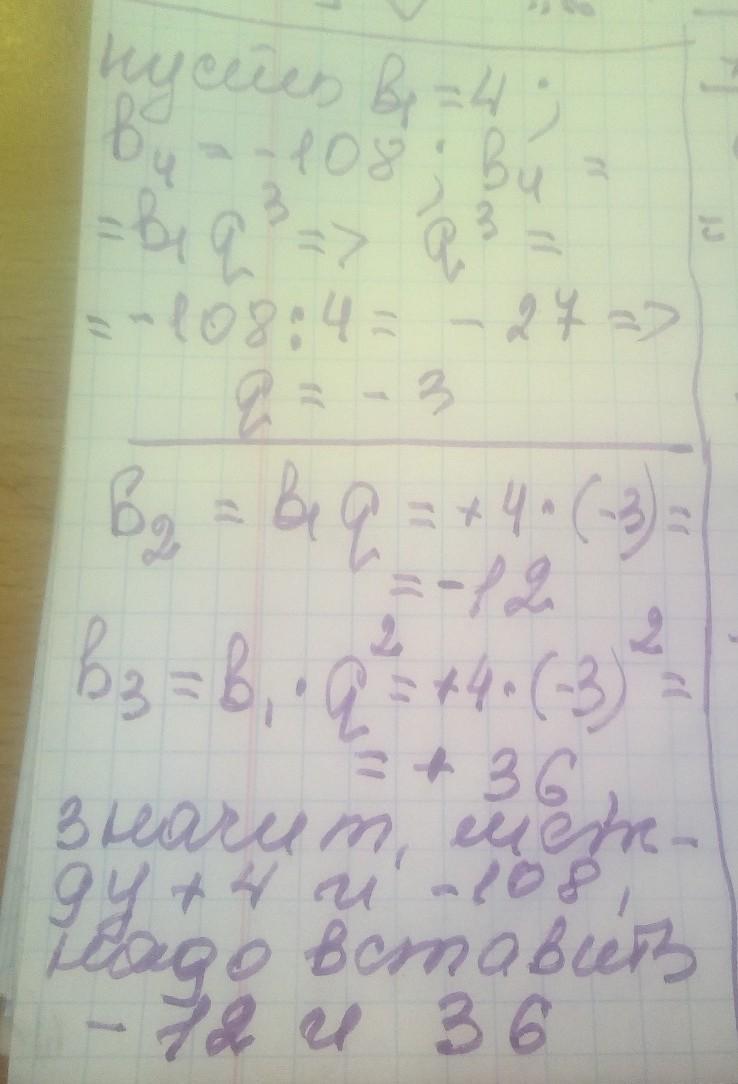 пусть b₁ = 4 ;
b₄ = -108 ; b₄ =
= b₁ q³ => q³ =
= -108 : 4 = - 27 =>
q = - 3
b₂ = b₁ q = +4 · (-3) =
= -12
b₃ = b₁ · q² = +4 · (-3)² =
= + 36
значит, меж-
ду +4 и -108,
надо вставить
- 12 и 36